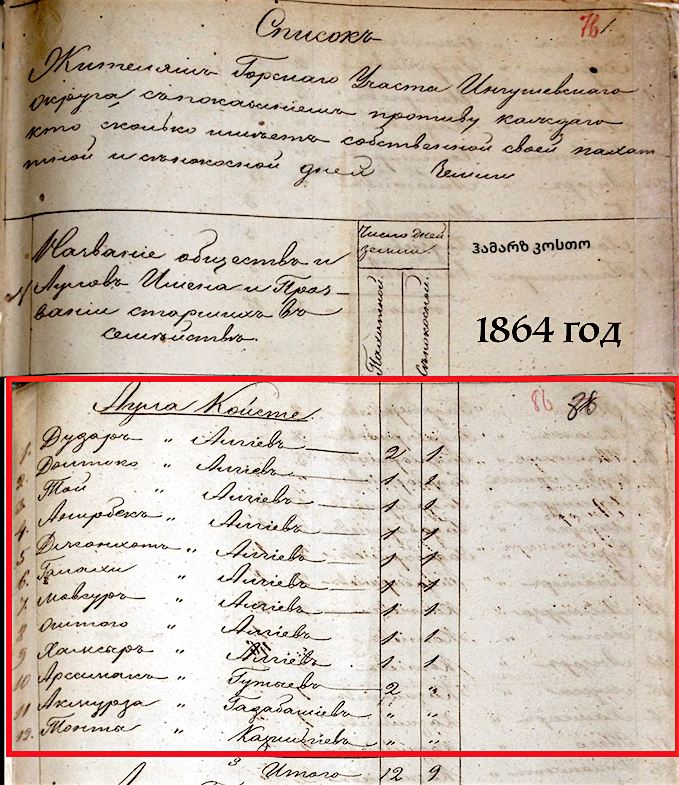 Списокъ
76
Жителямъ Горскаго Участа Ингушевскаго
округа съ показаніемъ противу каждаго
кто сколько имѣетъ собственной своей пахат
тной и сѣнокосной дней Земли
№
Названіе обществъ и
Ауловъ Имена и Проз-
ваніи старшихъ въ
семействѣ.
Число дней
земли.
Пахатной
Сѣнокосной.
ჰამარზ კოსტო
1864 год
Аула Койсте
86
1. Дударъ " Алгіевъ — 2 1
2. " Алгіевъ — 1 1
3. Той " Алгіевъ — 1 1
4. Амирбекъ " Алгіевъ — 1 1
5. " Алгіевъ — 1 1
6. " Алгіевъ — 1 1
7. Мовсуръ " Алгіевъ — 1 1
8. " Алгіевъ — 1 1
9. " Алгіевъ 1 1
10. Арсимакъ " Гутыевъ — 2 "
11. Акмурза " Гадабашевъ " "
12. Тонта " " "
Итого 12 9